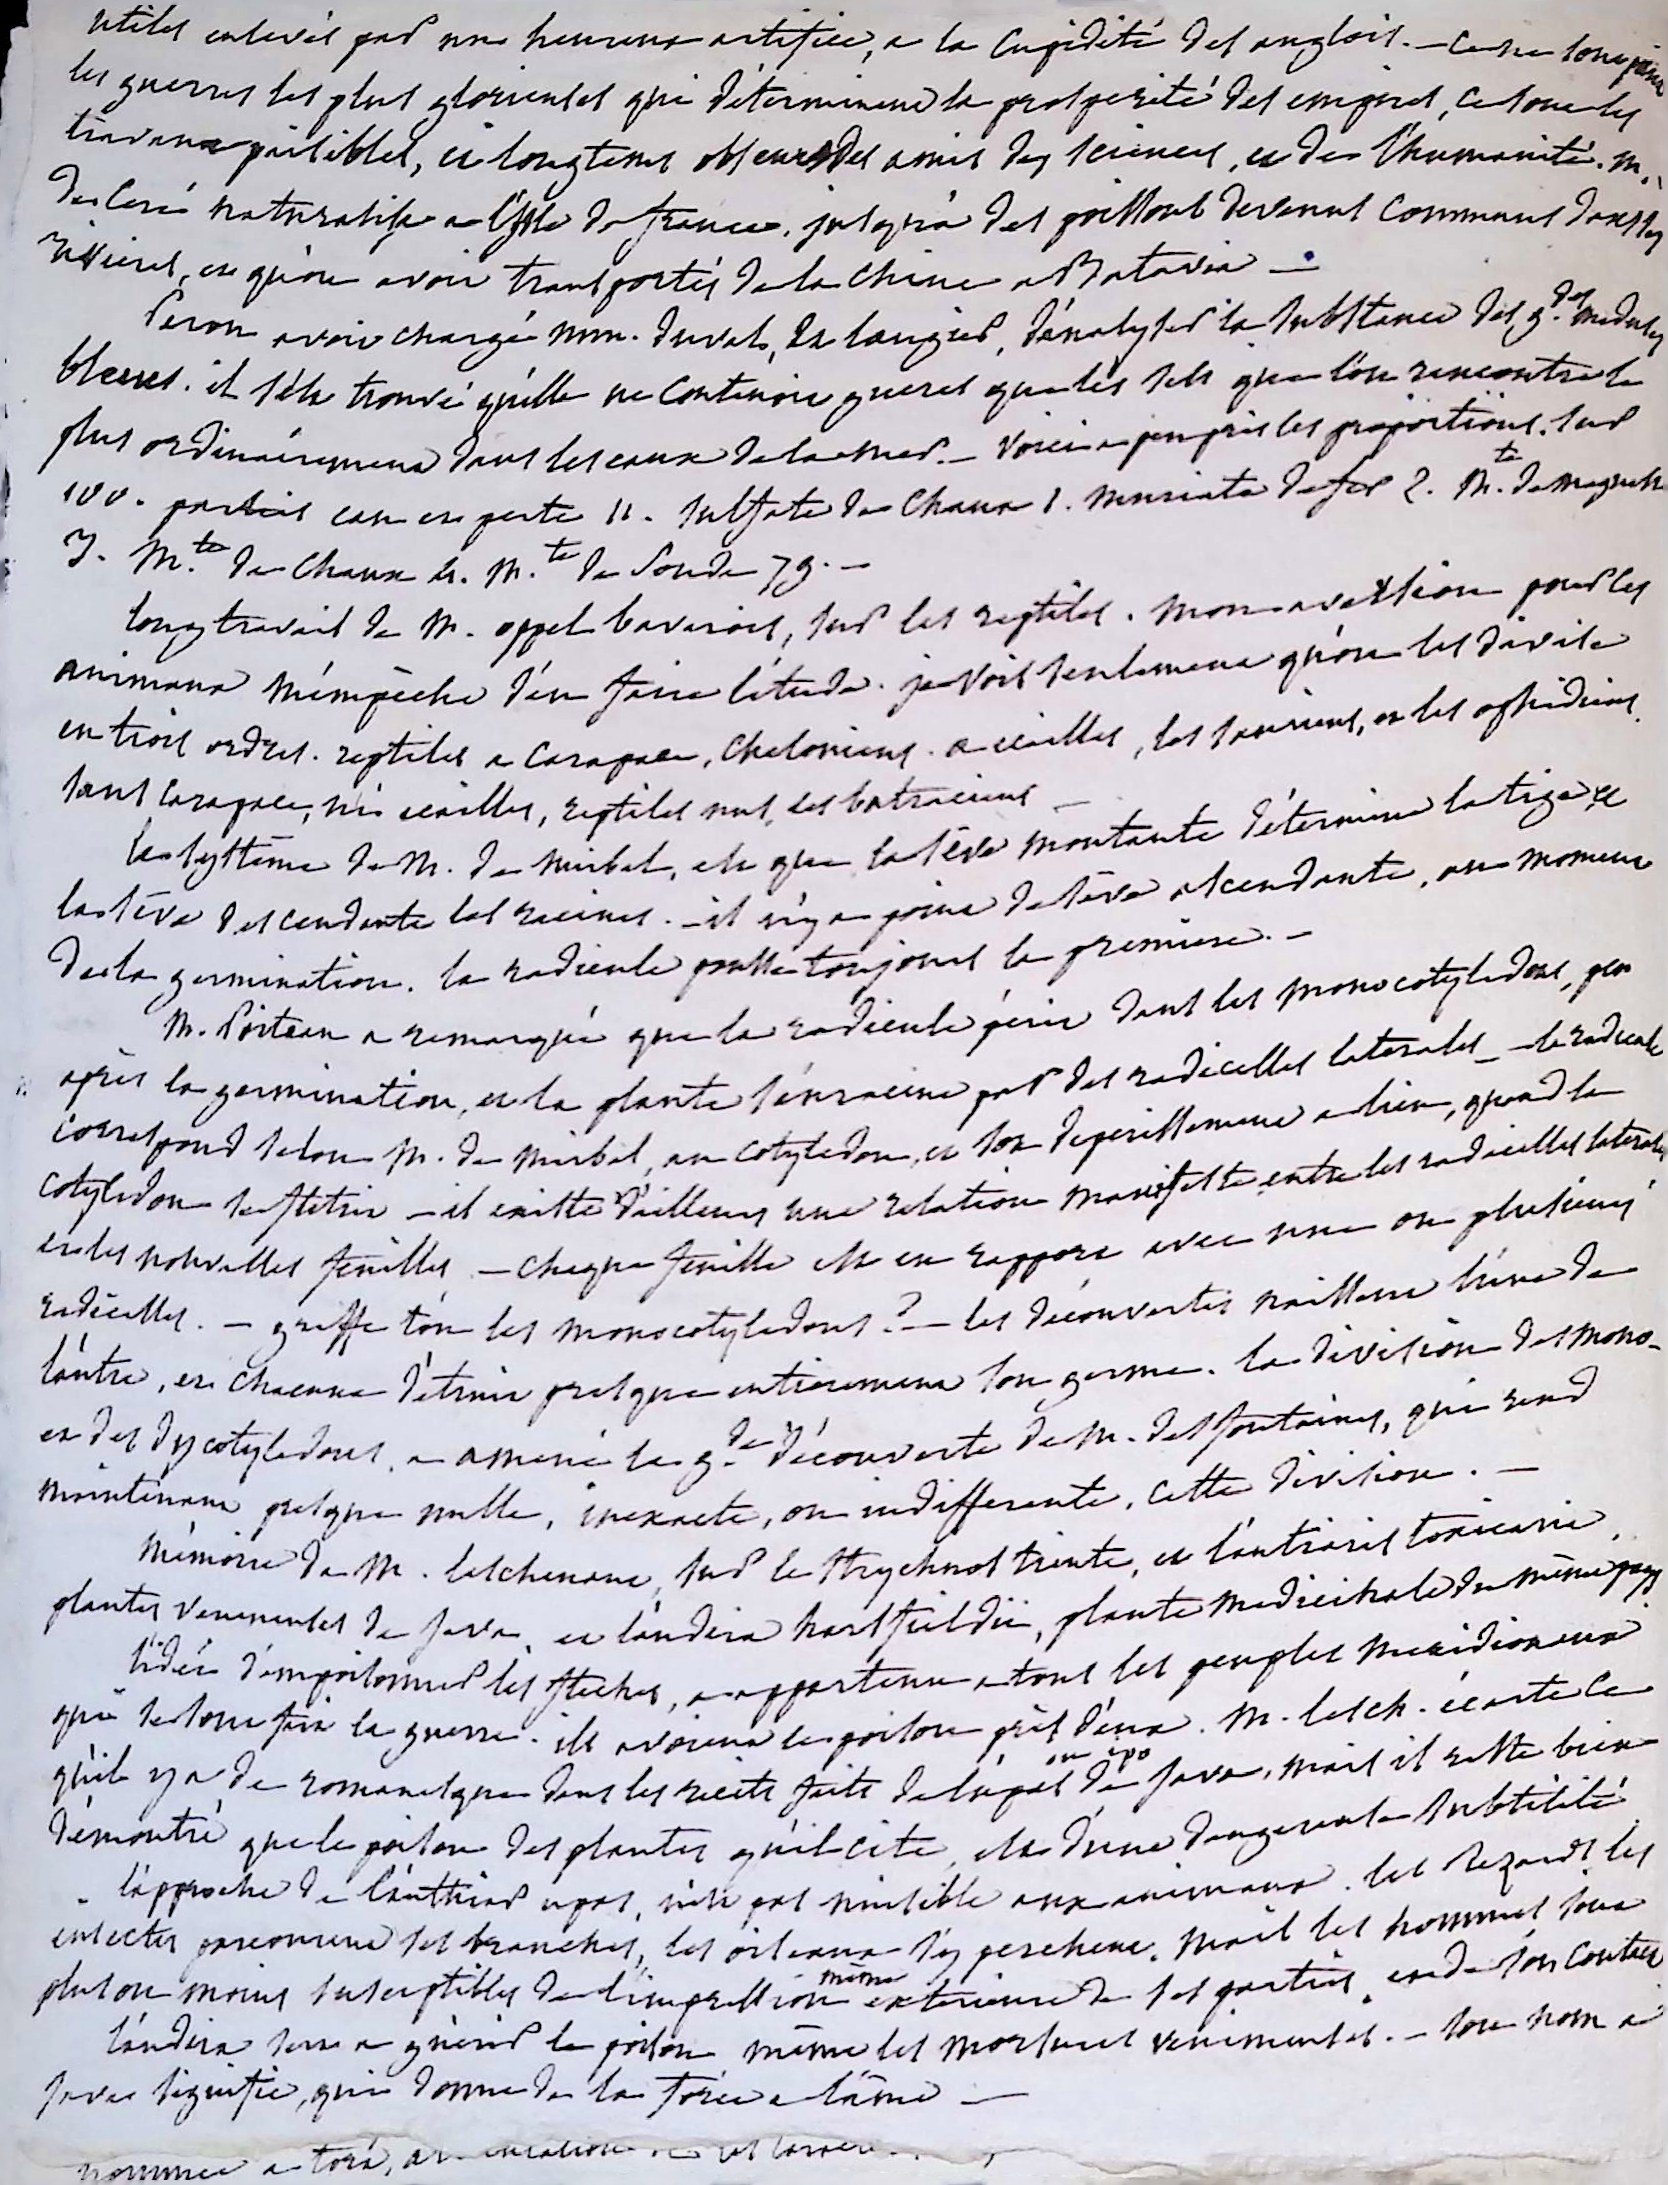 utiles enlevés par un heureux artifice, a la Cupidité des anglois. — Ce ne sont point
les guerres les plus glorieuses qui déterminent la prosperité des empires, ce sont les
travaux paisibles, et longtems obscurs des amis des sciences, et de l'humanité. M.
de Céré naturalisa a l'Isle de france, jusqu'à des poissons devenus communs dans les
rivieres, et qu'on avoit transportés de la Chine a Batavia —
Peron avoit chargé mm. Duval, et laugier, d'analyser la substance des g.des meduses
bleues. il s'est trouvé qu'elle ne contenoit gueres que les sels que l'on rencontre le
plus ordinairement dans les eaux de la mer. — Voici a peu près les proportions. sur
100. parties eau et perte 11. sulfate de Chaux 1. muriate de fer 2. M.te de magnesie
3. M.te de Chaux 4. M.te de Soude 79. —
long travail de M. oppel bavarois, sur les reptiles. Mon aversion pour les
animaux m'empêche d'en faire l'étude. je vois seulement qu'on les divise
en trois ordres. reptiles a Carapace, Cheloniens. a ecailles, les sauriens, et les ophidiens.
sans Carapace, ni ecailles, reptiles nus, les batraciens —
le systême de M. de Mirbel, est que la sêve montante détermine la tige et
la sêve descendante les racines. — il n'y a point de sêve ascendante, au moment
de la germination. la radicule pousse toujours la premiere. —
M. Poiteau a remarqué que la radicule périt dans les monocotyledons, peu
après la germination, et la plante s'enracine par des radicelles laterales — la radicule
correspond selon M. de Mirbel, au cotyledon, et son deperissement a lieu, quand le
cotyledon se fletrit — il existe d'ailleurs une relation manifeste entre les radicelles laterales
et les nouvelles feuilles — chaque feuille est en rapport avec une ou plusieurs
radicelles. — greffe t'on les monocotyledons ? — les découvertes naissent l'une de
l'autre, et chacune détruit presque entierement son germe. la division des mono-
et des dycotyledons, a amené la g.de découverte de M. desfontaines, qui rend
maintenant presque nulle, inexacte, ou indifferente, cette division. —
Mémoire de M. leschenault, sur le strychnos tieuté, et l'antiaris toxicaria,
plantes venimeuses de Java, et l'andira harsfieldii, plante medicinale du même pays
l'idée d'empoisonner les fleches, a appartenu a tous les peuples meridionaux
qui se sont fait la guerre. ils avoient le poison près d'eux. M. lesch. écarte ce
qu'il y a de romanesque dans les recits faits de l'upas ou ipo de Java, mais il reste bien
démontré que le poison des plantes qu'il cite, est d'une dangereuse subtilité
l'approche de l'anthiar upas, n'est pas nuisible aux animaux. les lezards les
insectes parcourent ses branches, les oiseaux s'y perchent. Mais les hommes sont
plus ou moins susceptibles de l'impression même exterieure de ses parties, et de son contact
l'andira sert a guérir le poison, même les morsures venimeuses. — son nom a
Java signifie, qui donne de la force a l'âme —
nommée a